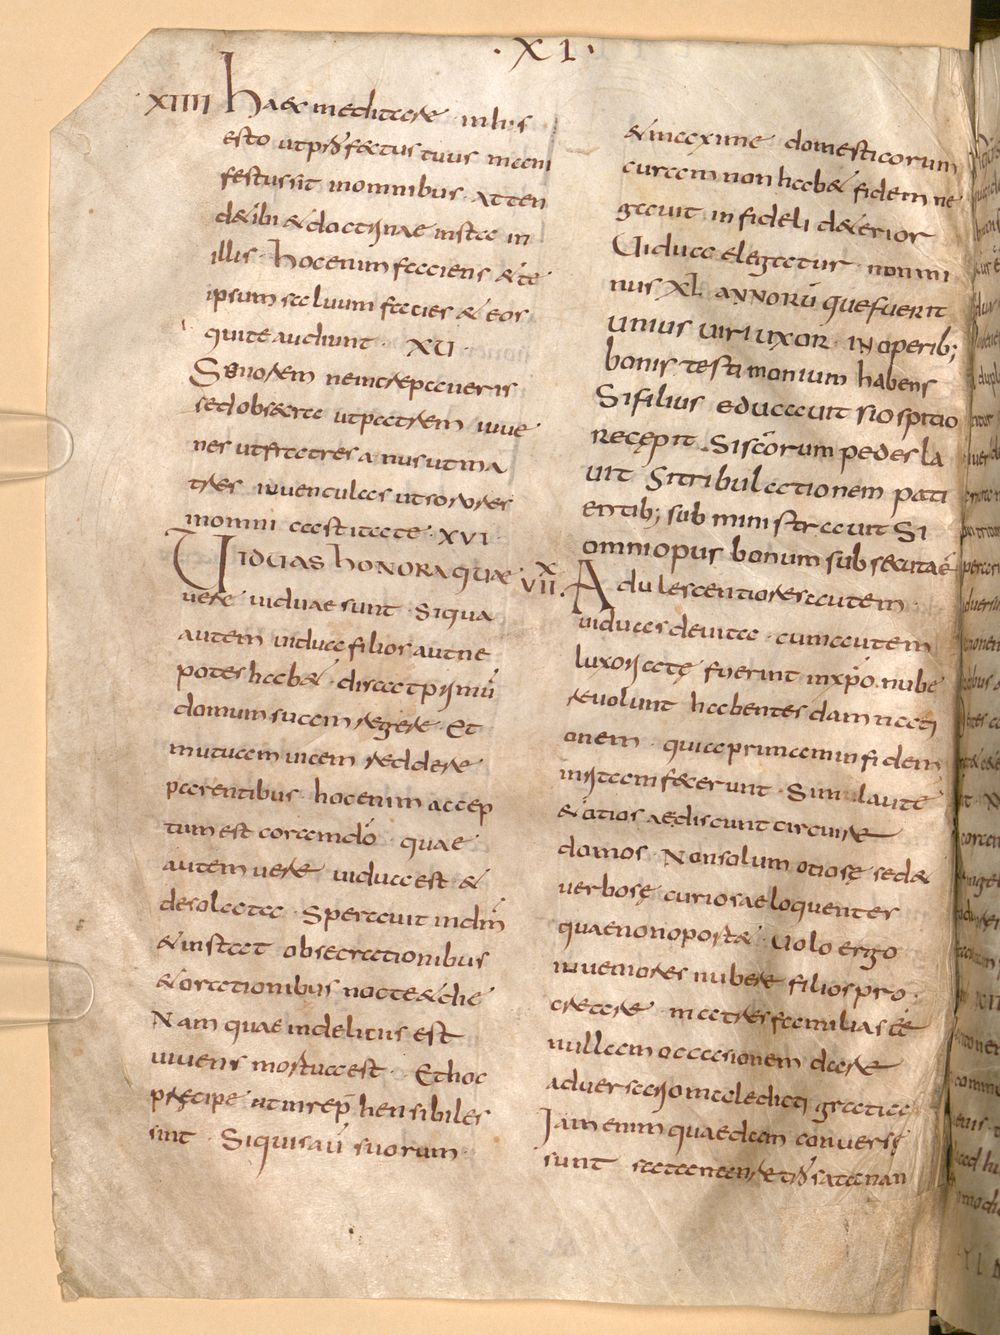 · XL ·
XIIII Haec meditare inhis
esto utp̄fectus tuus mani
festussit inomnibus · Atten
detibi & doctrinae insta in
illis · Hocenim faciens & te
ipsum saluum facies & eos
quiteaudiunt · XV ·
Seniorem neincrepaueris
sedobsecra utpatrem iuue
nes utfratres anusutma
tres iuuenculas utsorores
inomni castitate · XVI ·
Viduas honora quae
uere uiduae sunt · Siqua
autem uidua filios autne
potes habet · discat primū
domum suam regere · Et
mutuam uicem reddere
parentibus · hocenim accep
tum est coramdō · quae
autem uere uidua est &
desolata · Sperauit indm̄
& instat obsecrationibus
& orationibus nocte & die
Nam quae indelitiis est
uiuens mortua est · Ethoc
pręcipe utinrep̄hensibiles
sint · Siquis aū suorum
& maxime domesticorum
curam non habet fidem ne
gauit · infideli deterior
Uidua elegatur · nonmi
nus XL annorū quefuerit
unius uiri uxor · inoperib;
bonis testimonium habens
Sifilius educauit siospitio
recępit · Sisc̄orum pedes la
uit Sitribulationem pati
entib; subministrauit Si
omniopus bonum subsecutaē
XVII. Adulescentiores autem
uiduas deuita · cumautem
luxoriatę fuerint inxp̄o nube
reuolunt habentes damnati
onem · quiaprimam infidem
irritam fecerunt · Simulaute
& otios aediscunt circuire
domos · Nonsolum otiosę sed &
uerbosę curiosae loquentes
quaenonoportet · Uolo ergo
iuueniores nubere filiospro
creare · matresfamilias eē
nullam occasionem dare
aduersario maledicti gratia
Jam enim quaedam conuersę
sunt satananretrosatanan